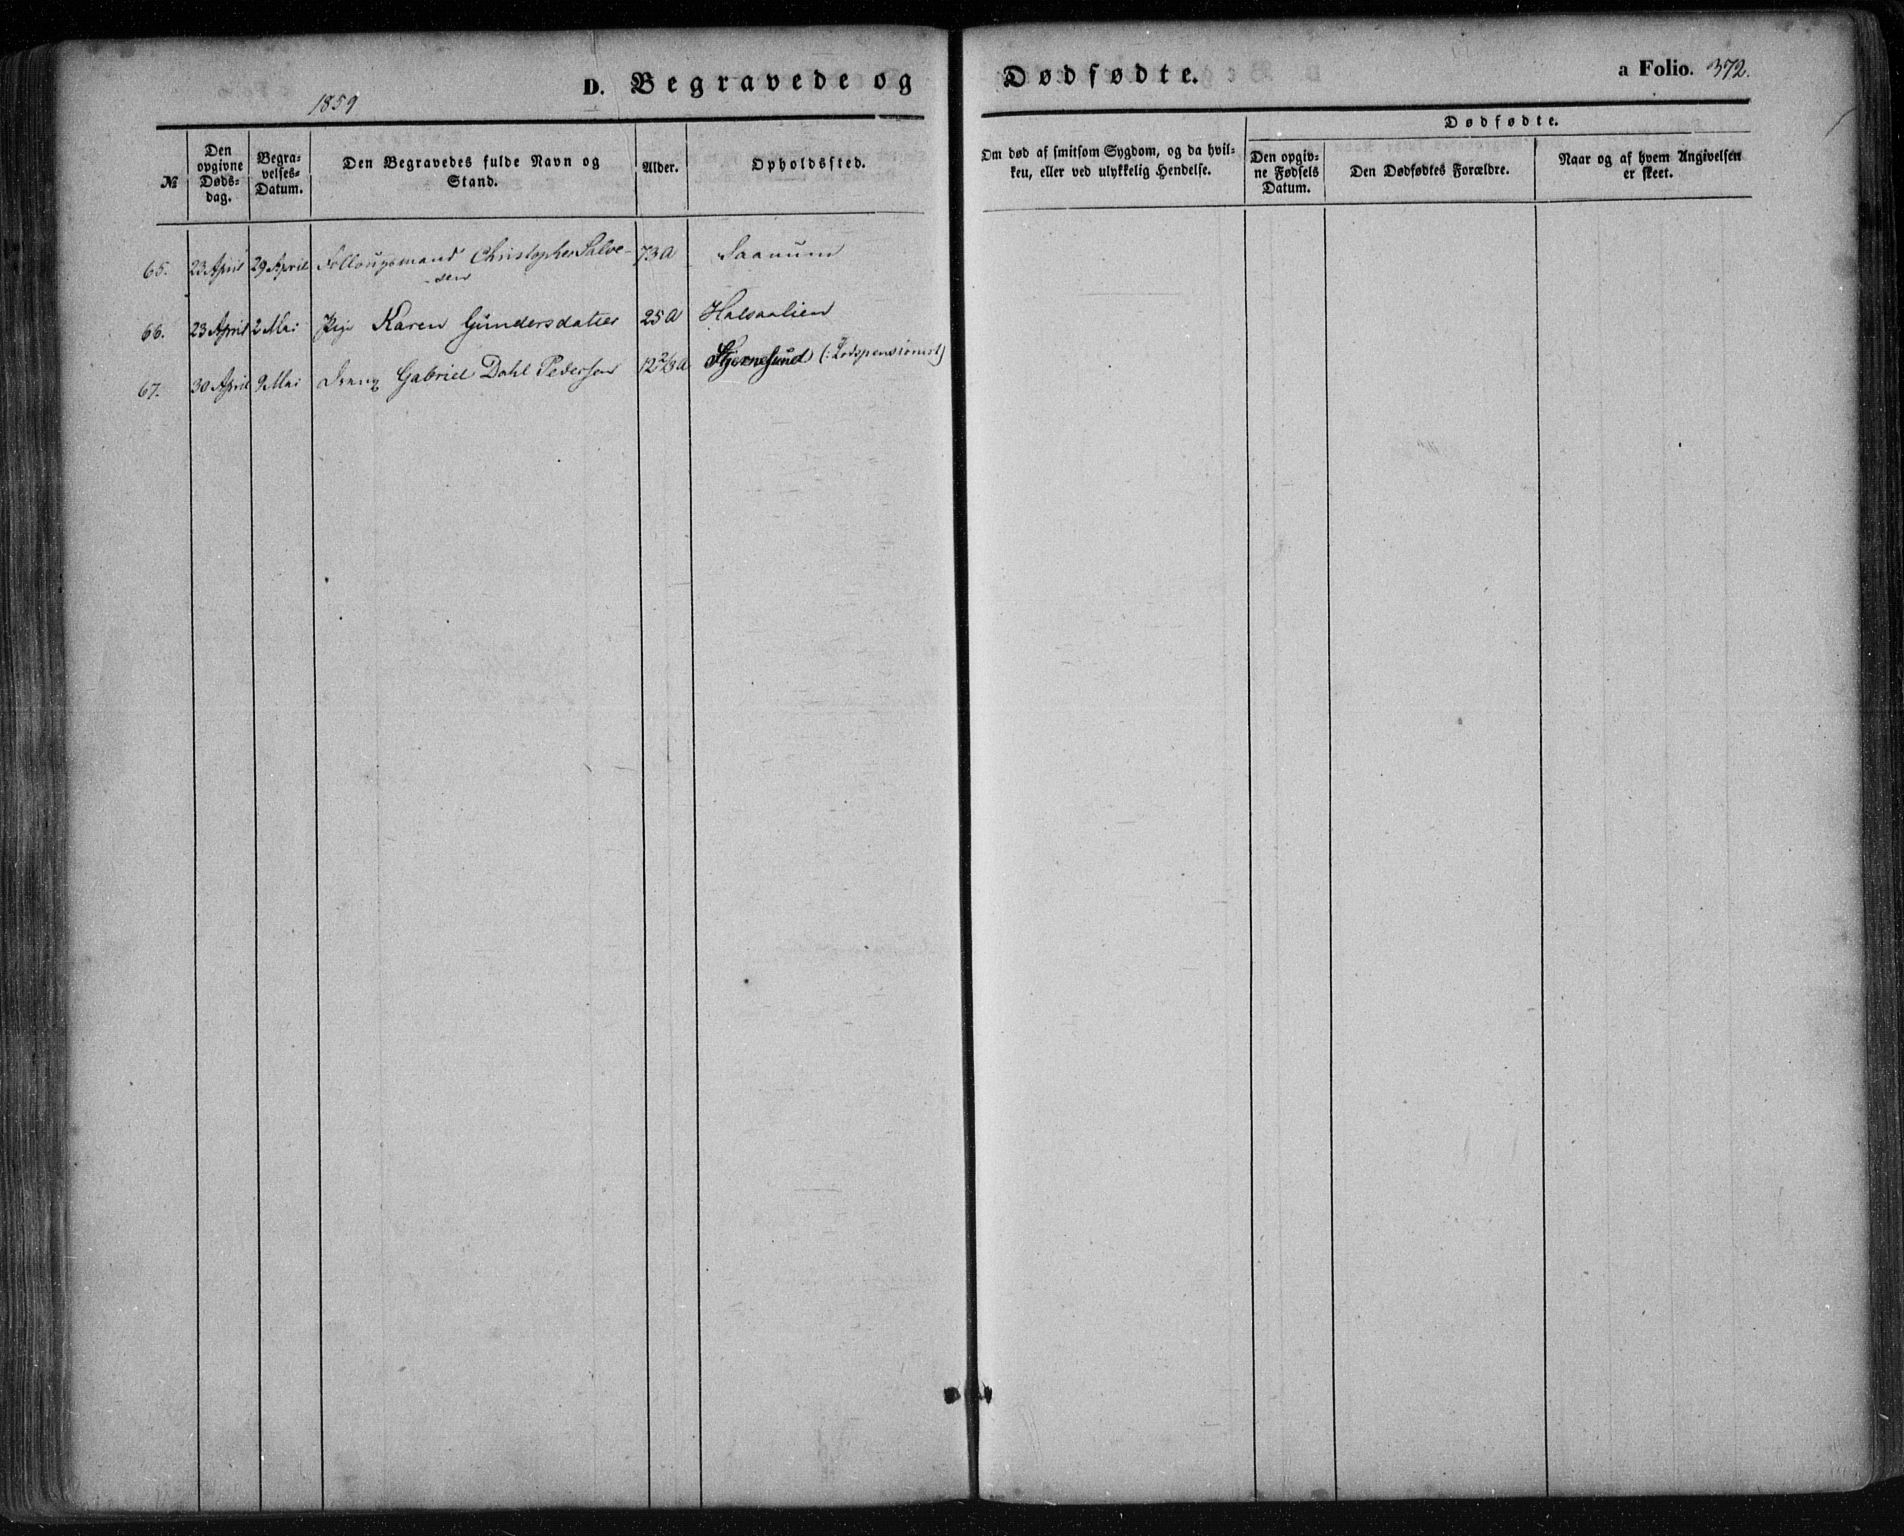 D. Begravede og Dødfødte.
a Folio. 372.
1859
Dødfødte.
№
Den opgivne Døds-dag.
Begra-velses-Datum.
Den Begravedes fulde Navn og Stand.
Alder.
Opholdssted.
Om død af smitsom Sygdom, og da hvil-
ken, eller ved ulykkelig Hendelse.
Den opgiv-ne Fødsels Datum.
Den Dødfødtes Forældre.
Naar og af hvem Angivelsen er skeet.
65. 23 April 29 April Follougsmand Christopher Salve- 73 A Saanum
sen
66. 23 April 2 Mai Pige Karen Gundersdatter 25 A Halsaalien
67. 30 April 9 Mai Dreng Gabriel Dahl Pedersen 12 2/3 A Stjernesund (: Lodspensionist)